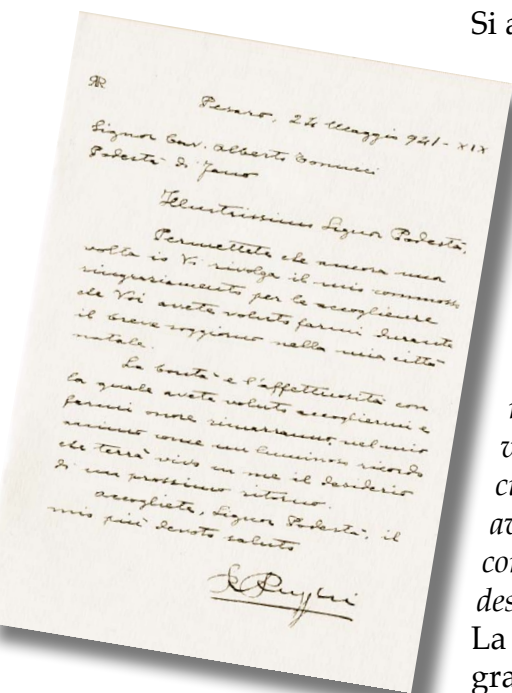 Si a
R
Pesaro, 24 Maggio 941 - XIX
Signor Cav. Alberto
Podestà di Fano
Illustrissimo Signor Podestà,
Permettete che ancora una
volta io Vi rivolga il mio commosso
ringraziamento per le accoglienze
che Voi avete voluto farmi durante
il breve soggiorno nella mia città
natale.
La bontà e l'affettuosità con
la quale avete voluto accogliermi e
farmi onore rimarranno nel mio
animo come un luminoso ricordo
che terrà vivo in me il desiderio
di un prossimo ritorno.
Accogliete, Signor Podestà, il
mio più devoto saluto
v
av
con
des
La
gra